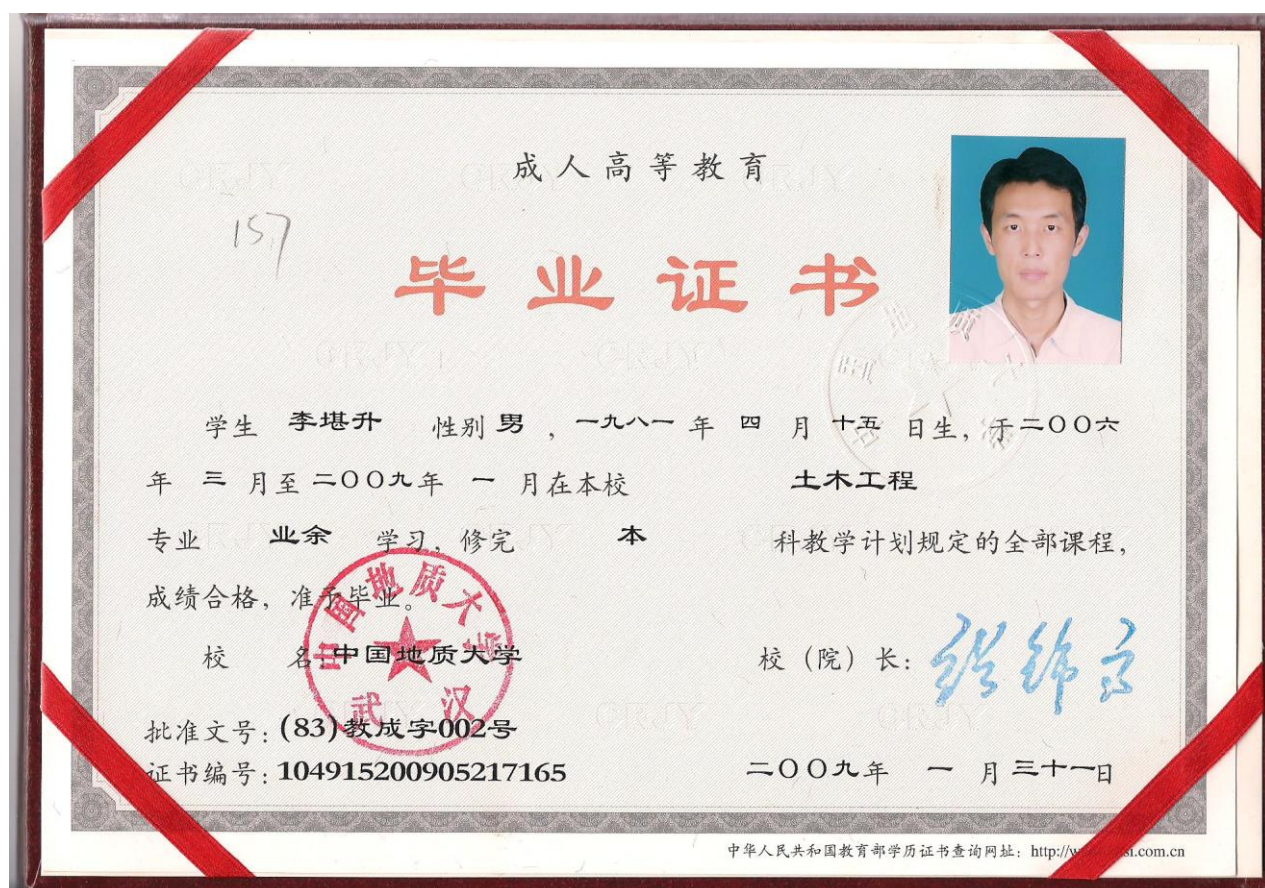 成人高等教育
157
毕业证书
学生 李堪升 性别 男 , 一九八一 年 四 月 十五 日生, 于二〇〇六
年 三 月至 二〇〇九年 一 月在本校 土木工程
专业 业余 学习, 修完 本 科教学计划规定的全部课程,
成绩合格, 准予毕业。
校 名:中国地质大学 校(院)长:
中国地质大学
武汉
批准文号:(83)教成字002号
证书编号:104915200905217165 二〇〇九年 一 月 三十一日
中华人民共和国教育部学历证书查询网址: http://